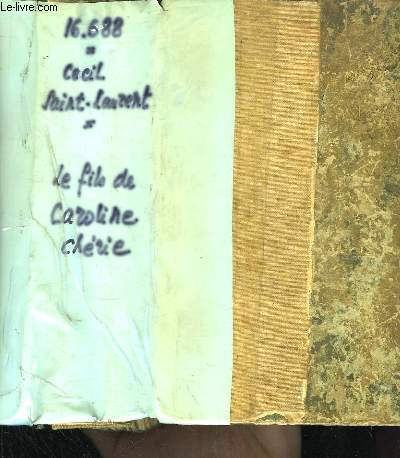 Le-livre.fr
16.688
=
Cecil
Saint-Laurent
=
Le fils de
Caroline
Chérie